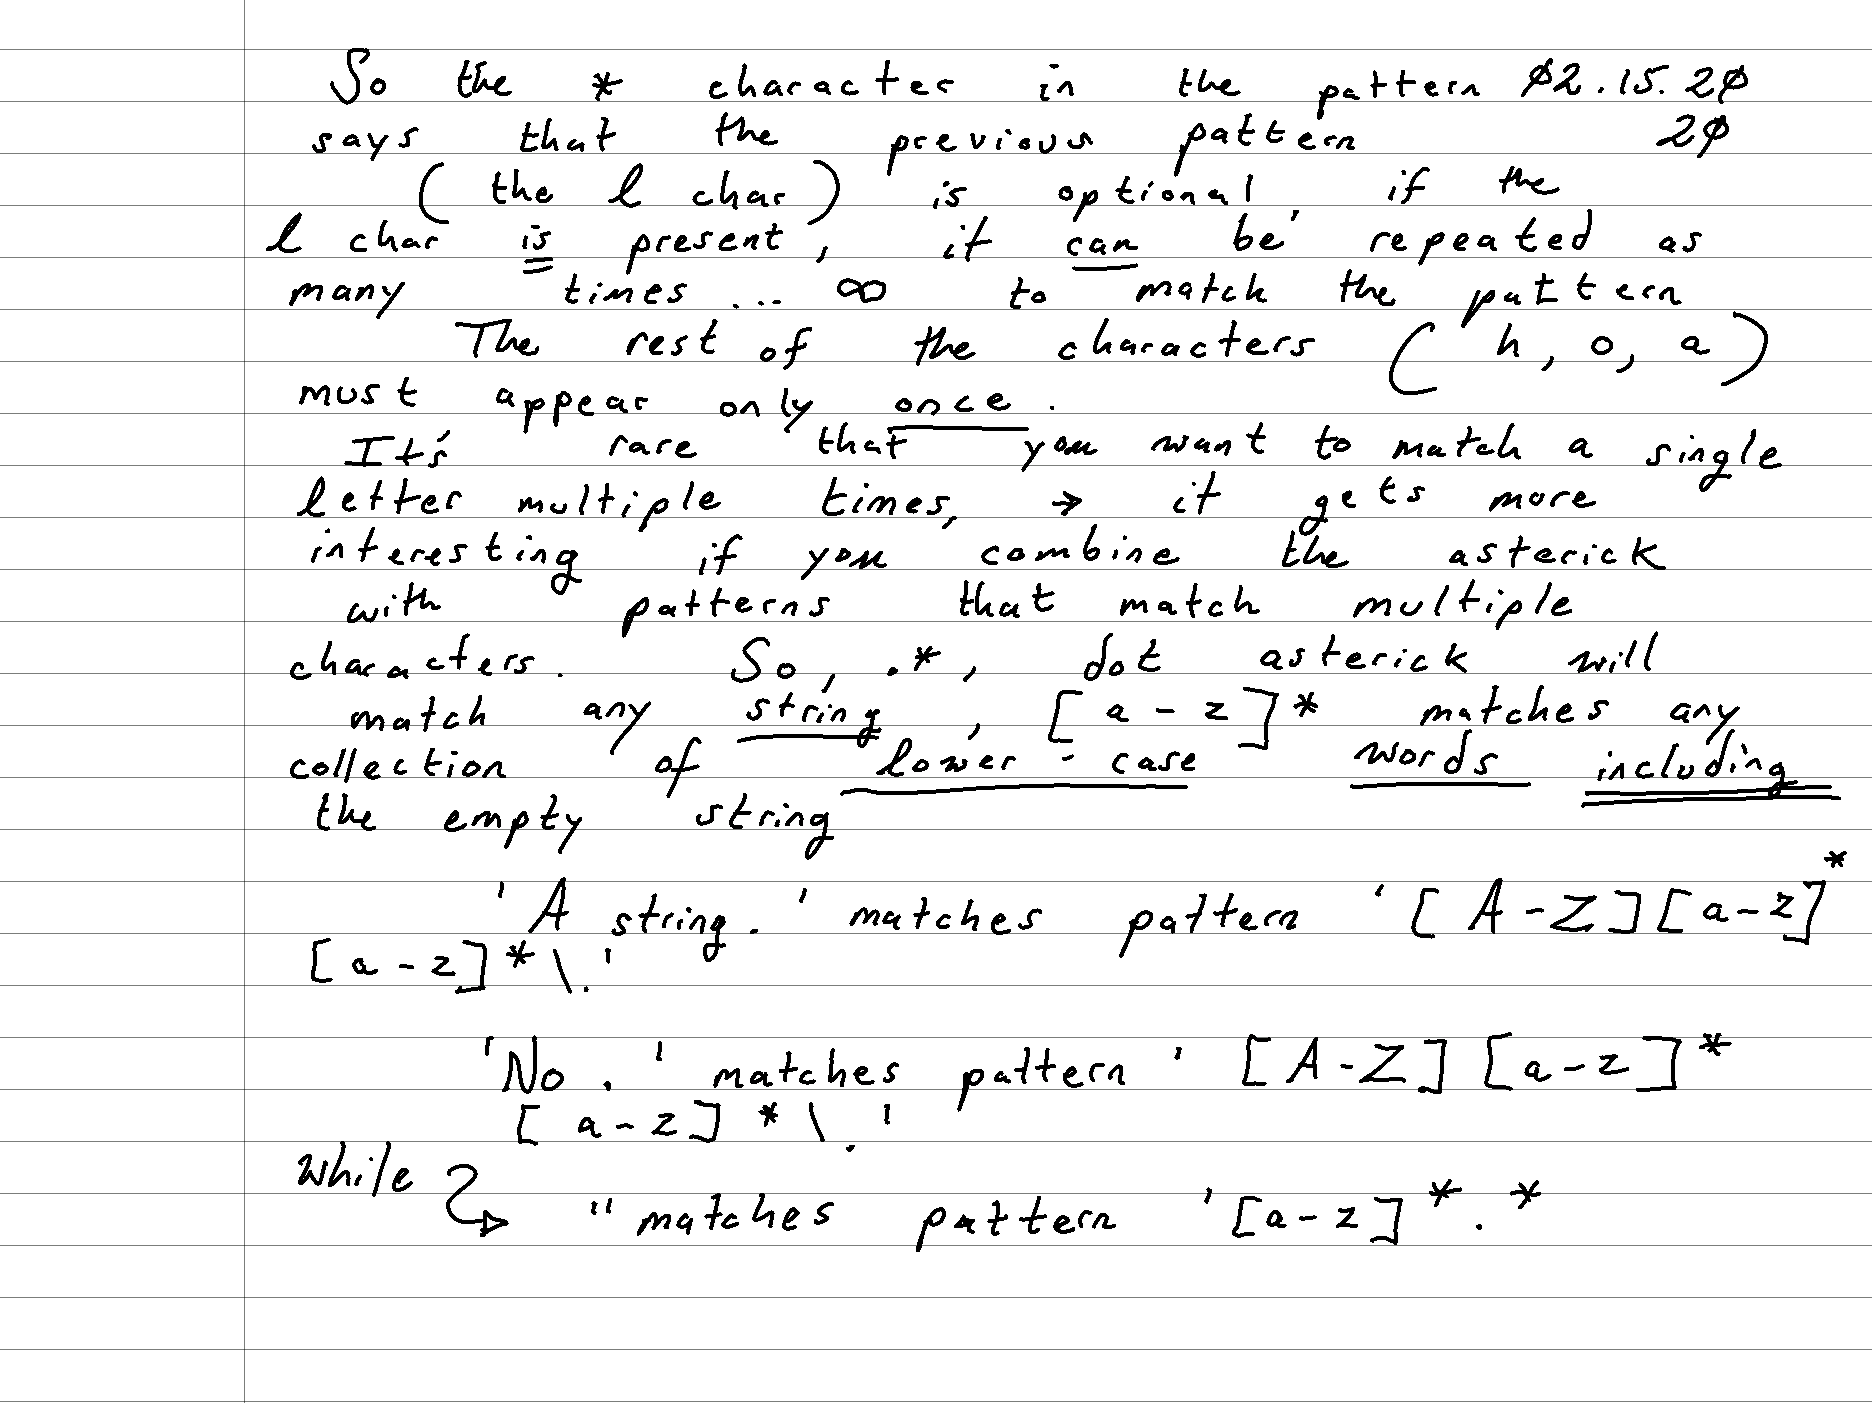 So the * character in the pattern Ø2.15.2Ø
says that the previous pattern 2Ø
(the l char) is optional, if the
l char is present, it can be repeated as
many times ... ∞ to match the pattern
The rest of the characters (h, o, a)
must appear only once.
It's rare that you want to match a single
letter multiple times, → it gets more
interesting if you combine the asterick
with patterns that match multiple
characters. So, .*, dot asterick will
match any string, [a-z]* matches any
collection of lower-case words including
the empty string
'A string.' matches pattern '[A-Z][a-z]*
[a-z]*\.'
'No.' matches pattern '[A-Z][a-z]*
[a-z]*\.'
while
'' matches pattern '[a-z]*.*